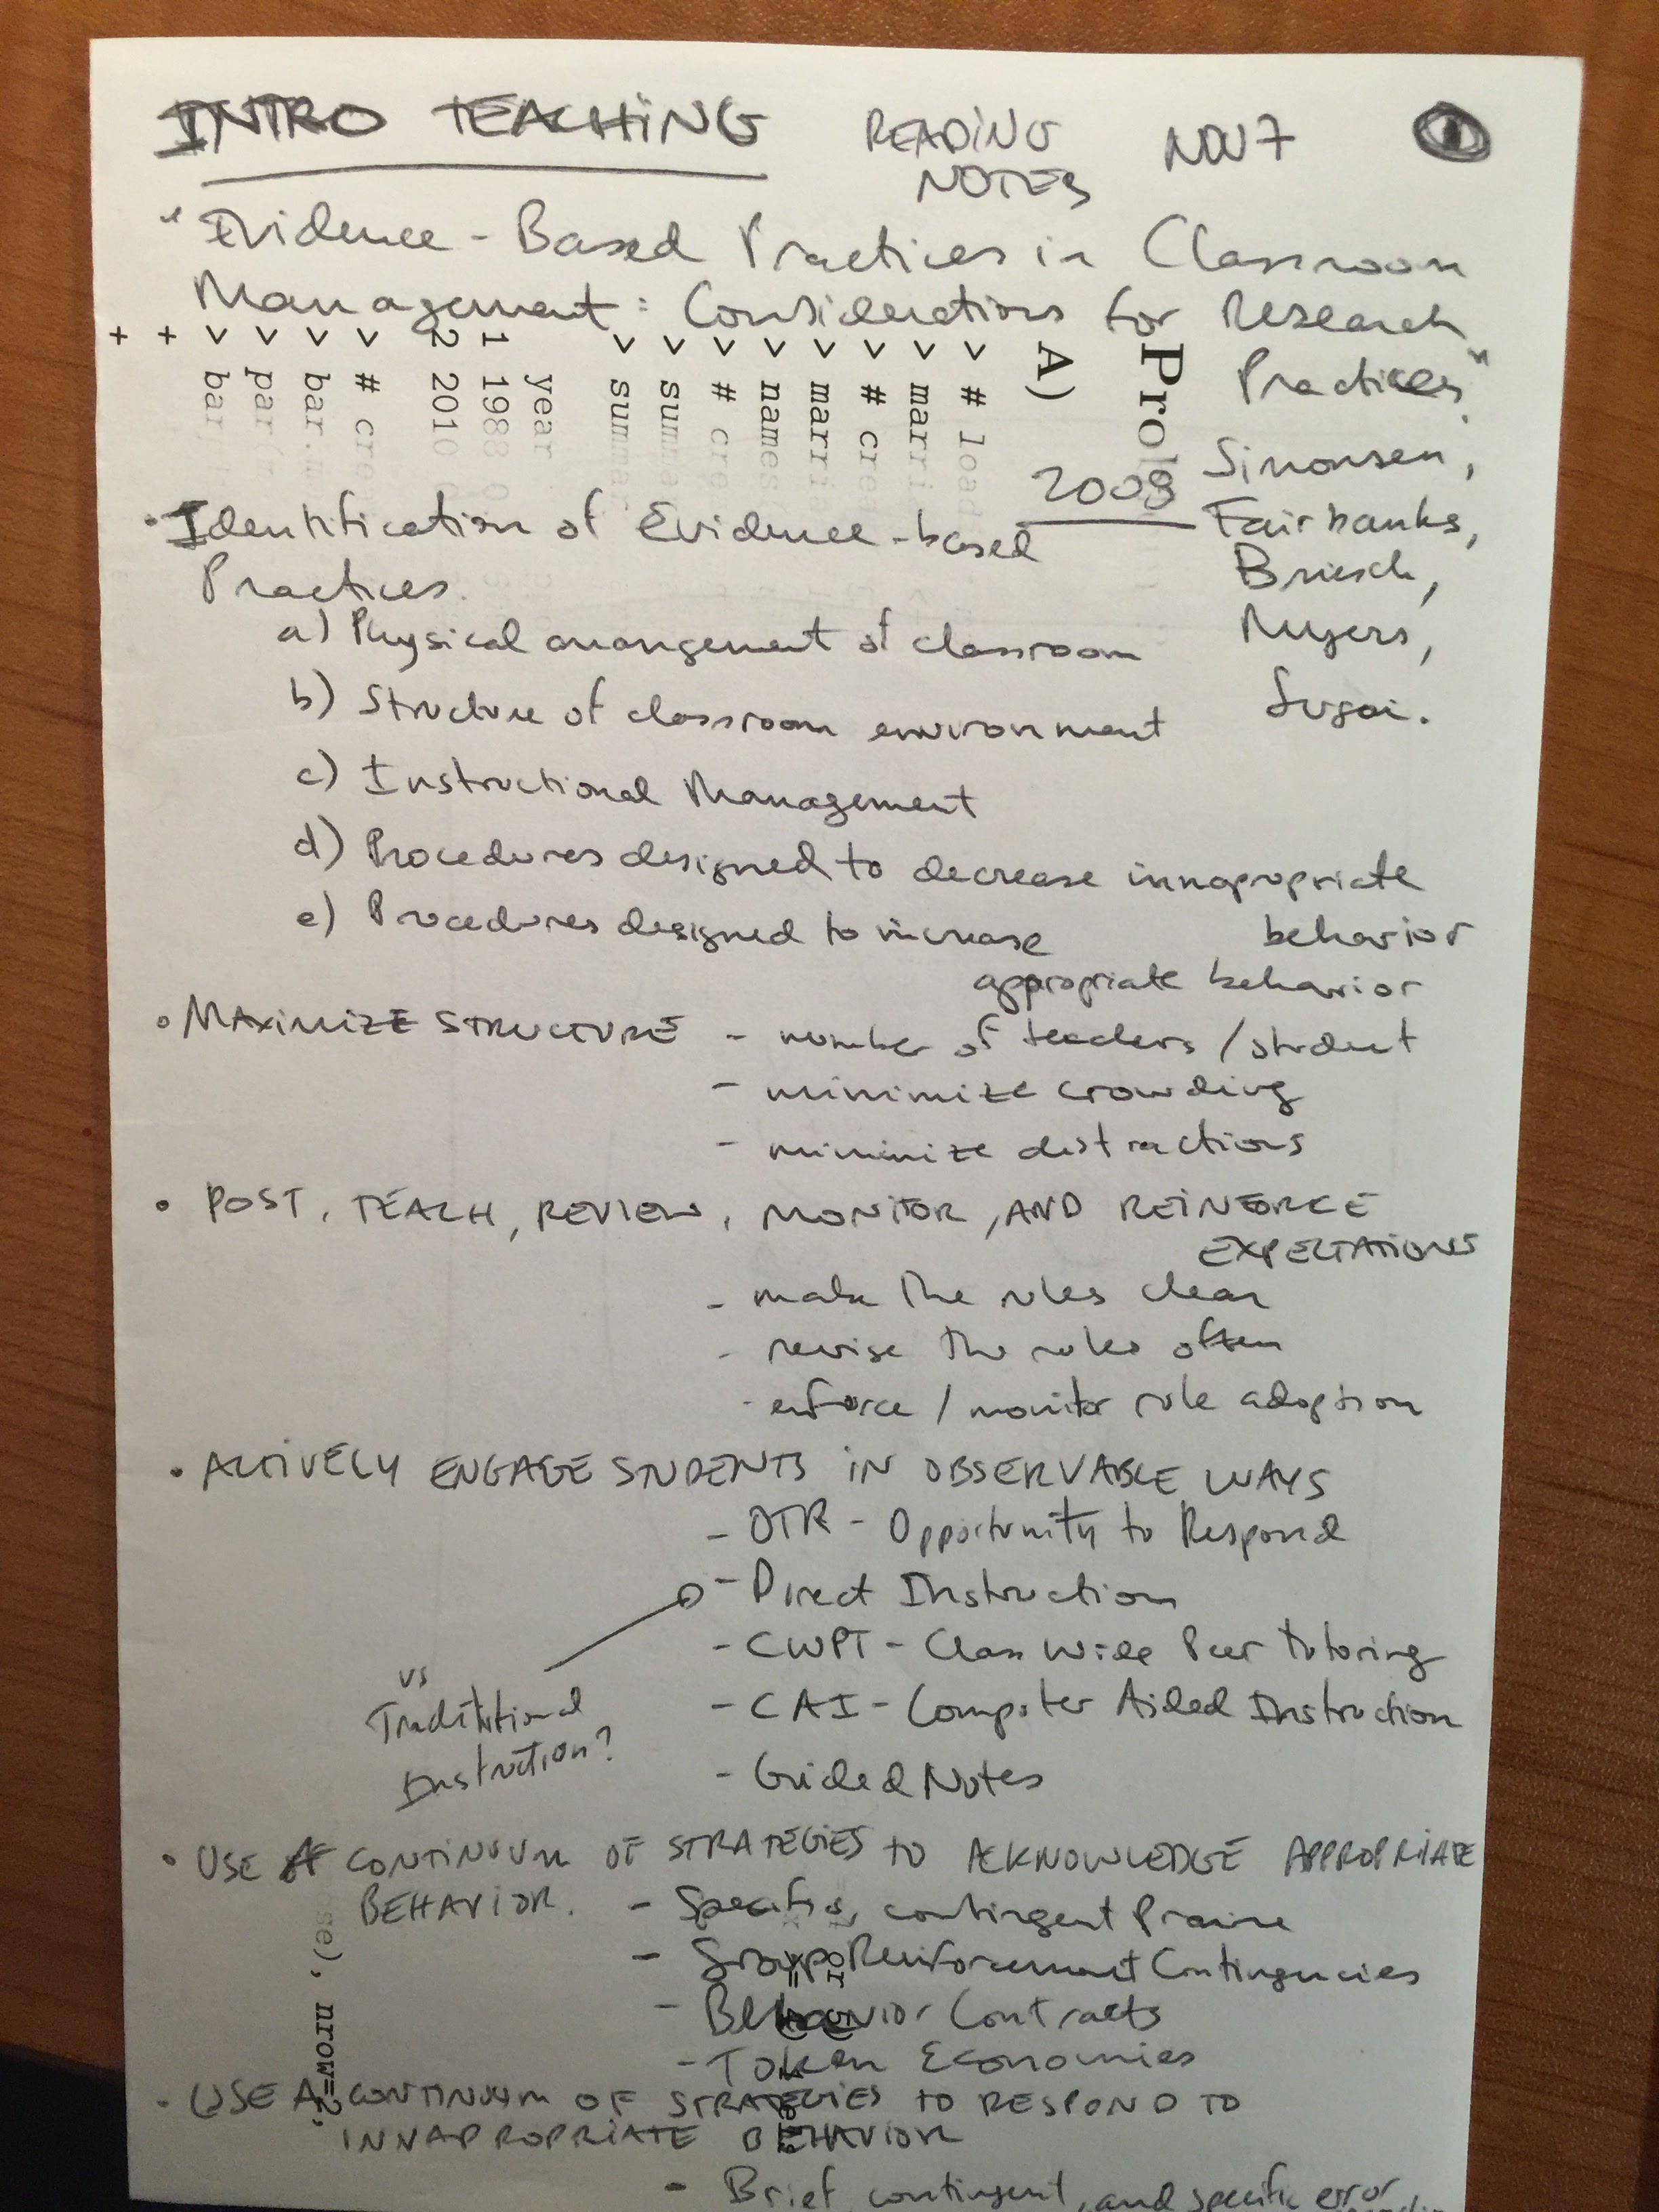 INTRO TEACHING READING NOTES NOV 7 1
"Evidence-Based Practices in Classroom
Management: Considerations for Research
Practices."
Simonsen,
Fairbanks,
Briesch,
Myers,
Sugai.
2008
+
+
> bar
> par
> bar.
> # cre
2 2010
1 1988 0
year
> summ
> summar
> # cre
> names
> marri
> # cre
> marri
> # load
A)
Prob
• Identification of Evidence-based
Practices.
a) Physical arrangement of classroom
b) Structure of classroom environment
c) Instructional Management
d) Procedures designed to decrease innapropriate
behavior
e) Procedures designed to increase
appropriate behavior
• MAXIMIZE STRUCTURE - number of teachers / student
- minimize crowding
- minimize distractions
• POST, TEACH, REVIEW, MONITOR, AND REINFORCE
EXPECTATIONS
- make the rules clear
- revise the rules often
- enforce / monitor rule adoption
• ACTIVELY ENGAGE STUDENTS IN OBSERVABLE WAYS
- OTR - Opportunity to Respond
- Direct Instruction
- CWPT - Class Wide Peer Tutoring
vs
Traditional
Instruction?
- CAI - Computer Aided Instruction
- Guided Notes
• USE A CONTINUUM OF STRATEGIES TO ACKNOWLEDGE APPROPRIATE
BEHAVIOR. - Specific, contingent Praise
- Group Reinforcement Contingencies
- Behavior Contracts
- Token Economies
se), nrow=2,
• USE A CONTINUUM OF STRATEGIES TO RESPOND TO
INNAPROPRIATE BEHAVIOR
- Brief, contingent, and specific error